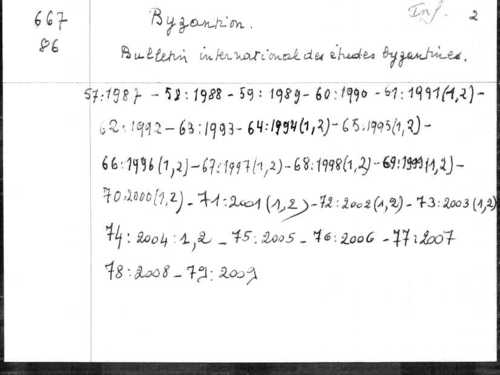 667
86
Inf. 2
Byzantion.
Bulletin international des études byzantines.
57:1987 - 58:1988 - 59:1989 - 60:1990 - 61:1991(1,2) -
62:1992 - 63:1993 - 64:1994(1,2) - 65.1995(1,2) -
66:1996(1,2) - 67:1997(1,2) - 68:1998(1,2) - 69:1999(1,2) -
70:2000(1,2) - 71:2001(1,2) - 72:2002(1,2) - 73:2003(1,2)
74:2004:1,2 - 75:2005 - 76:2006 - 77:2007
78:2008 - 79:2009